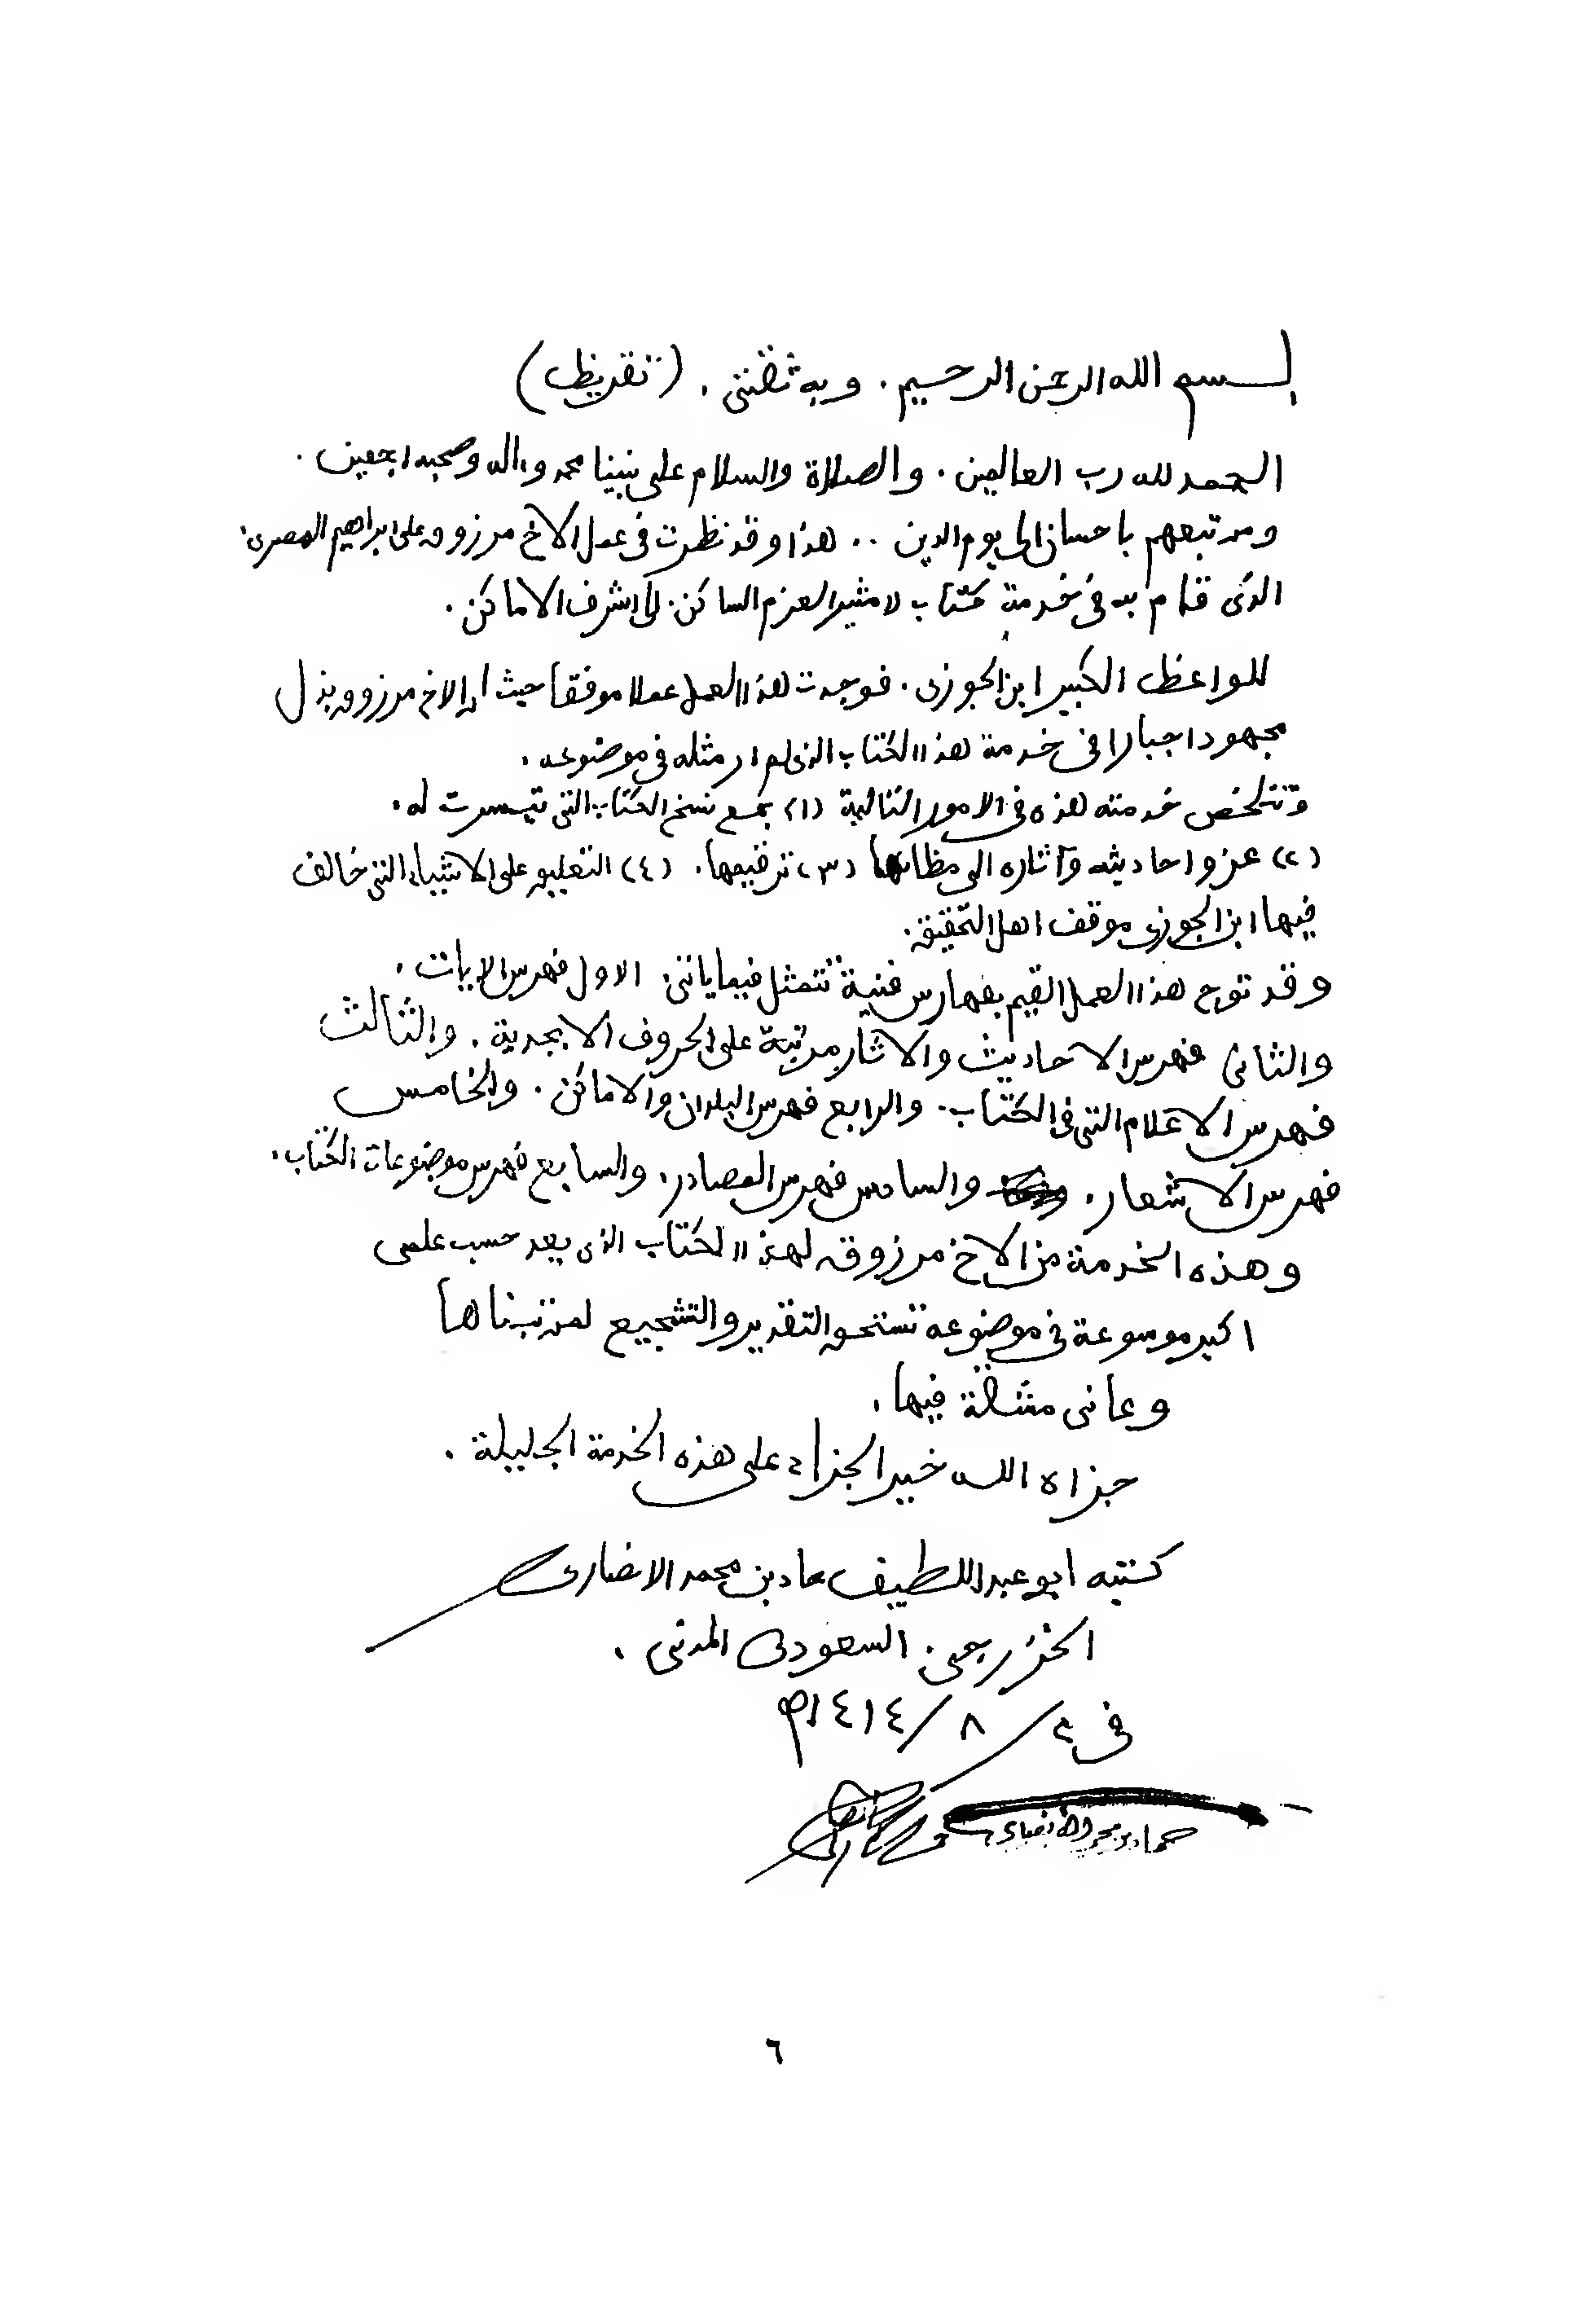 بسم الله الرحمن الرحيم . وبه ثقتى . (تقريظ)
الحمد لله رب العالمين . والصلاة والسلام على نبينا محمد وءاله وصحبه اجمعين .
ومن تبعهم باحسان الى يوم الدين .. هذا وقد نظرت فى عمل الاخ مرزوق على ابراهيم المصرى .
الذى قام به فى خدمة كتاب لا مثير العزم الساكن . الى اشرف الاماكن .
للواعظ الكبير ابن الجوزى . فوجدت هذا العمل عملا موفقا حيث ان الاخ مرزوق بذل
مجهودا جبارا فى خدمة هذا الكتاب الذى لم ار مثله فى موضوعه .
وتتلخص خدمته هذه فى الامور التالية (١) بجمع نسخ الكتاب التى تيسرت له .
(٢) عزو احاديثه وآثاره الى مظانها (٣) ترقيمها . (٤) التعليق على الاشياء التى خالف
فيها ابن الجوزى موقف اهل التحقيق .
وقد توج هذا العمل القيم بفهارس فنية تتمثل فيما ياتى . الاول فهرس الايات .
والثانى فهرس الاحاديث والاثار مرتبة على الحروف الابجدية . والثالث
فهرس الاعلام التى فى الكتاب . والرابع فهرس البلدان والاماكن . والخامس
فهرس الاشعار . والسادس فهرس المصادر . والسابع فهرس موضوعات الكتاب .
وهذه الخدمة من الاخ مرزوق لهذا الكتاب الذى يعد حسب علمى
اكبر موسوعة فى موضوعه تستحق التقدير والتشجيع لمن تبناها
وعانى مشقة فيها .
جزاه الله خير الجزاء على هذه الخدمة الجليلة .
كتبه ابو عبد اللطيف حماد بن محمد الانصارى
الخزرجى . السعودى المدنى .
فى ٤ / ٨ / ١٤١٤هـ
حماد بن محمد الأنصارى
٦